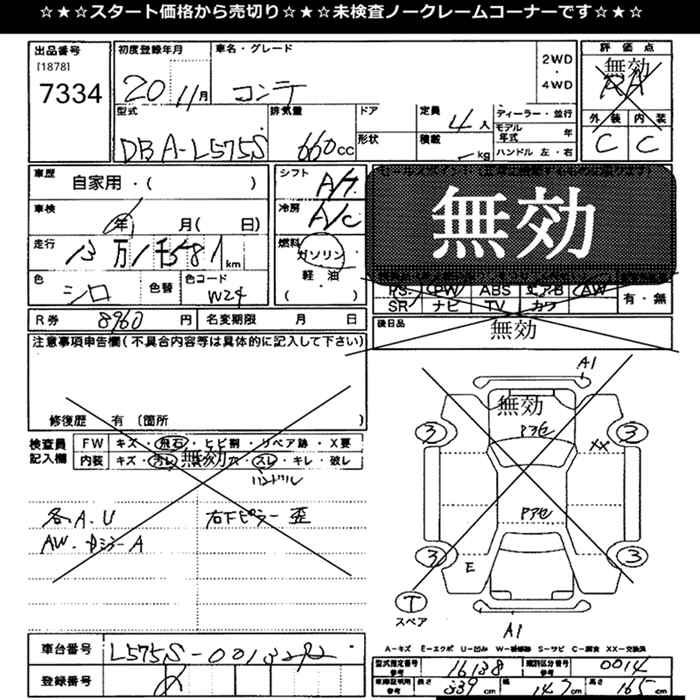 ☆★☆スタート価格から売切り☆★☆未検査ノークレームコーナーです☆★☆
出品番号
[1878]
7334
初度登録年月
20 11月
車名・グレード
コンテ
2WD
・
4WD
評価点
無効
外装 内装
C C
型式
DBA-L575S
排気量
660cc
ドア
形状
定員
4人
積載
kg
ディーラー・並行
モデル年式 年
ハンドル 左・右
車歴
自家用・( )
車検
年 月( 日)
走行
13万1千581km
色
シロ
色替
色コード
W24
シフト
A/T
冷房
A/C
燃料
ガソリン
軽・油
( )
無効
PS PW ABS エアB AW
SR ナビ TV カワ
有・無
R券 8960円
名変期限 月 日
後日品
無効
注意事項申告欄(不具合内容等は具体的に記入して下さい)
修復歴 有 〔箇所
検査員記入欄
FW キズ・飛石・ヒビ割・リペア跡・X要
内装 キズ・汚レ・無効穴・スレ・キレ・破レ
ハンドル
各A.U
右下ピラー歪
AW.カジョーA
A1
無効
Pアセ
3 3
XX
Pアセ
3 3
E
T
スペア
A1
A-キズ E-エクボ U-凹み W-補修跡 S-サビ C-腐食 XX-交換済
車台番号
L575S-0013292
登録番号
型式指定番号 参考 16138
類別区分番号 参考 0014
車庫証明用 参考 長さ 339cm 幅 147cm 高さ 165cm